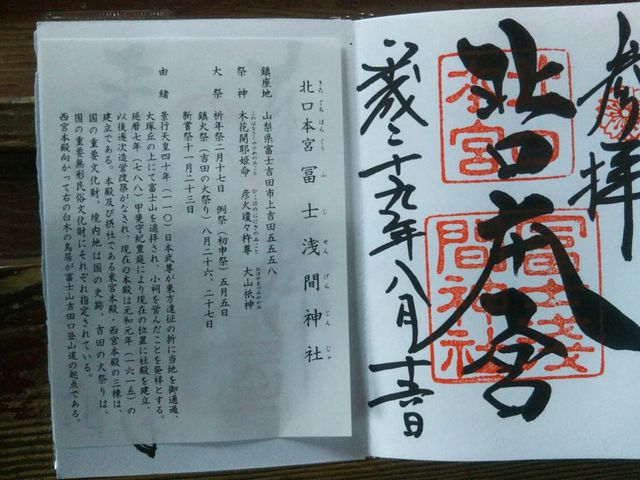 奉拝
北口本宮
平成二十九年八月十六日
北口本宮冨士浅間神社
きたぐちほんぐう ふじ せんげん じんじゃ
鎮座地 山梨県富士吉田市上吉田五五五八
祭神 木花開耶姫命 彦火瓊々杵尊 大山祇神
このはなさくやひめのみこと ひこほのににぎのみこと おおやまづみのかみ
大祭 祈年祭二月十七日 例祭(初申祭)五月五日
鎮火祭(吉田の火祭り)八月二十六、二十七日
新嘗祭十一月二十三日
由緒 景行天皇四十年(一一〇)日本武尊が東方遠征の折に当地を御通過、
大塚丘の上にて富士山を遥拝され、小祠を営んだことを発祥とする。
延暦七年(七八八)甲斐守紀豊庭により現在の位置に社殿を建立、
以後逐次造営改築がなされ、現在の本殿は元和元年(一六一五)の
建立である。本殿及び摂社である東宮本殿・西宮本殿の三棟は、
国の重要文化財、境内地は国の史跡、吉田の火祭りは、
国の重要無形民俗文化財にそれぞれ指定されている。
西宮本殿向かって右の白木の鳥居が富士山吉田口登山道の起点である。